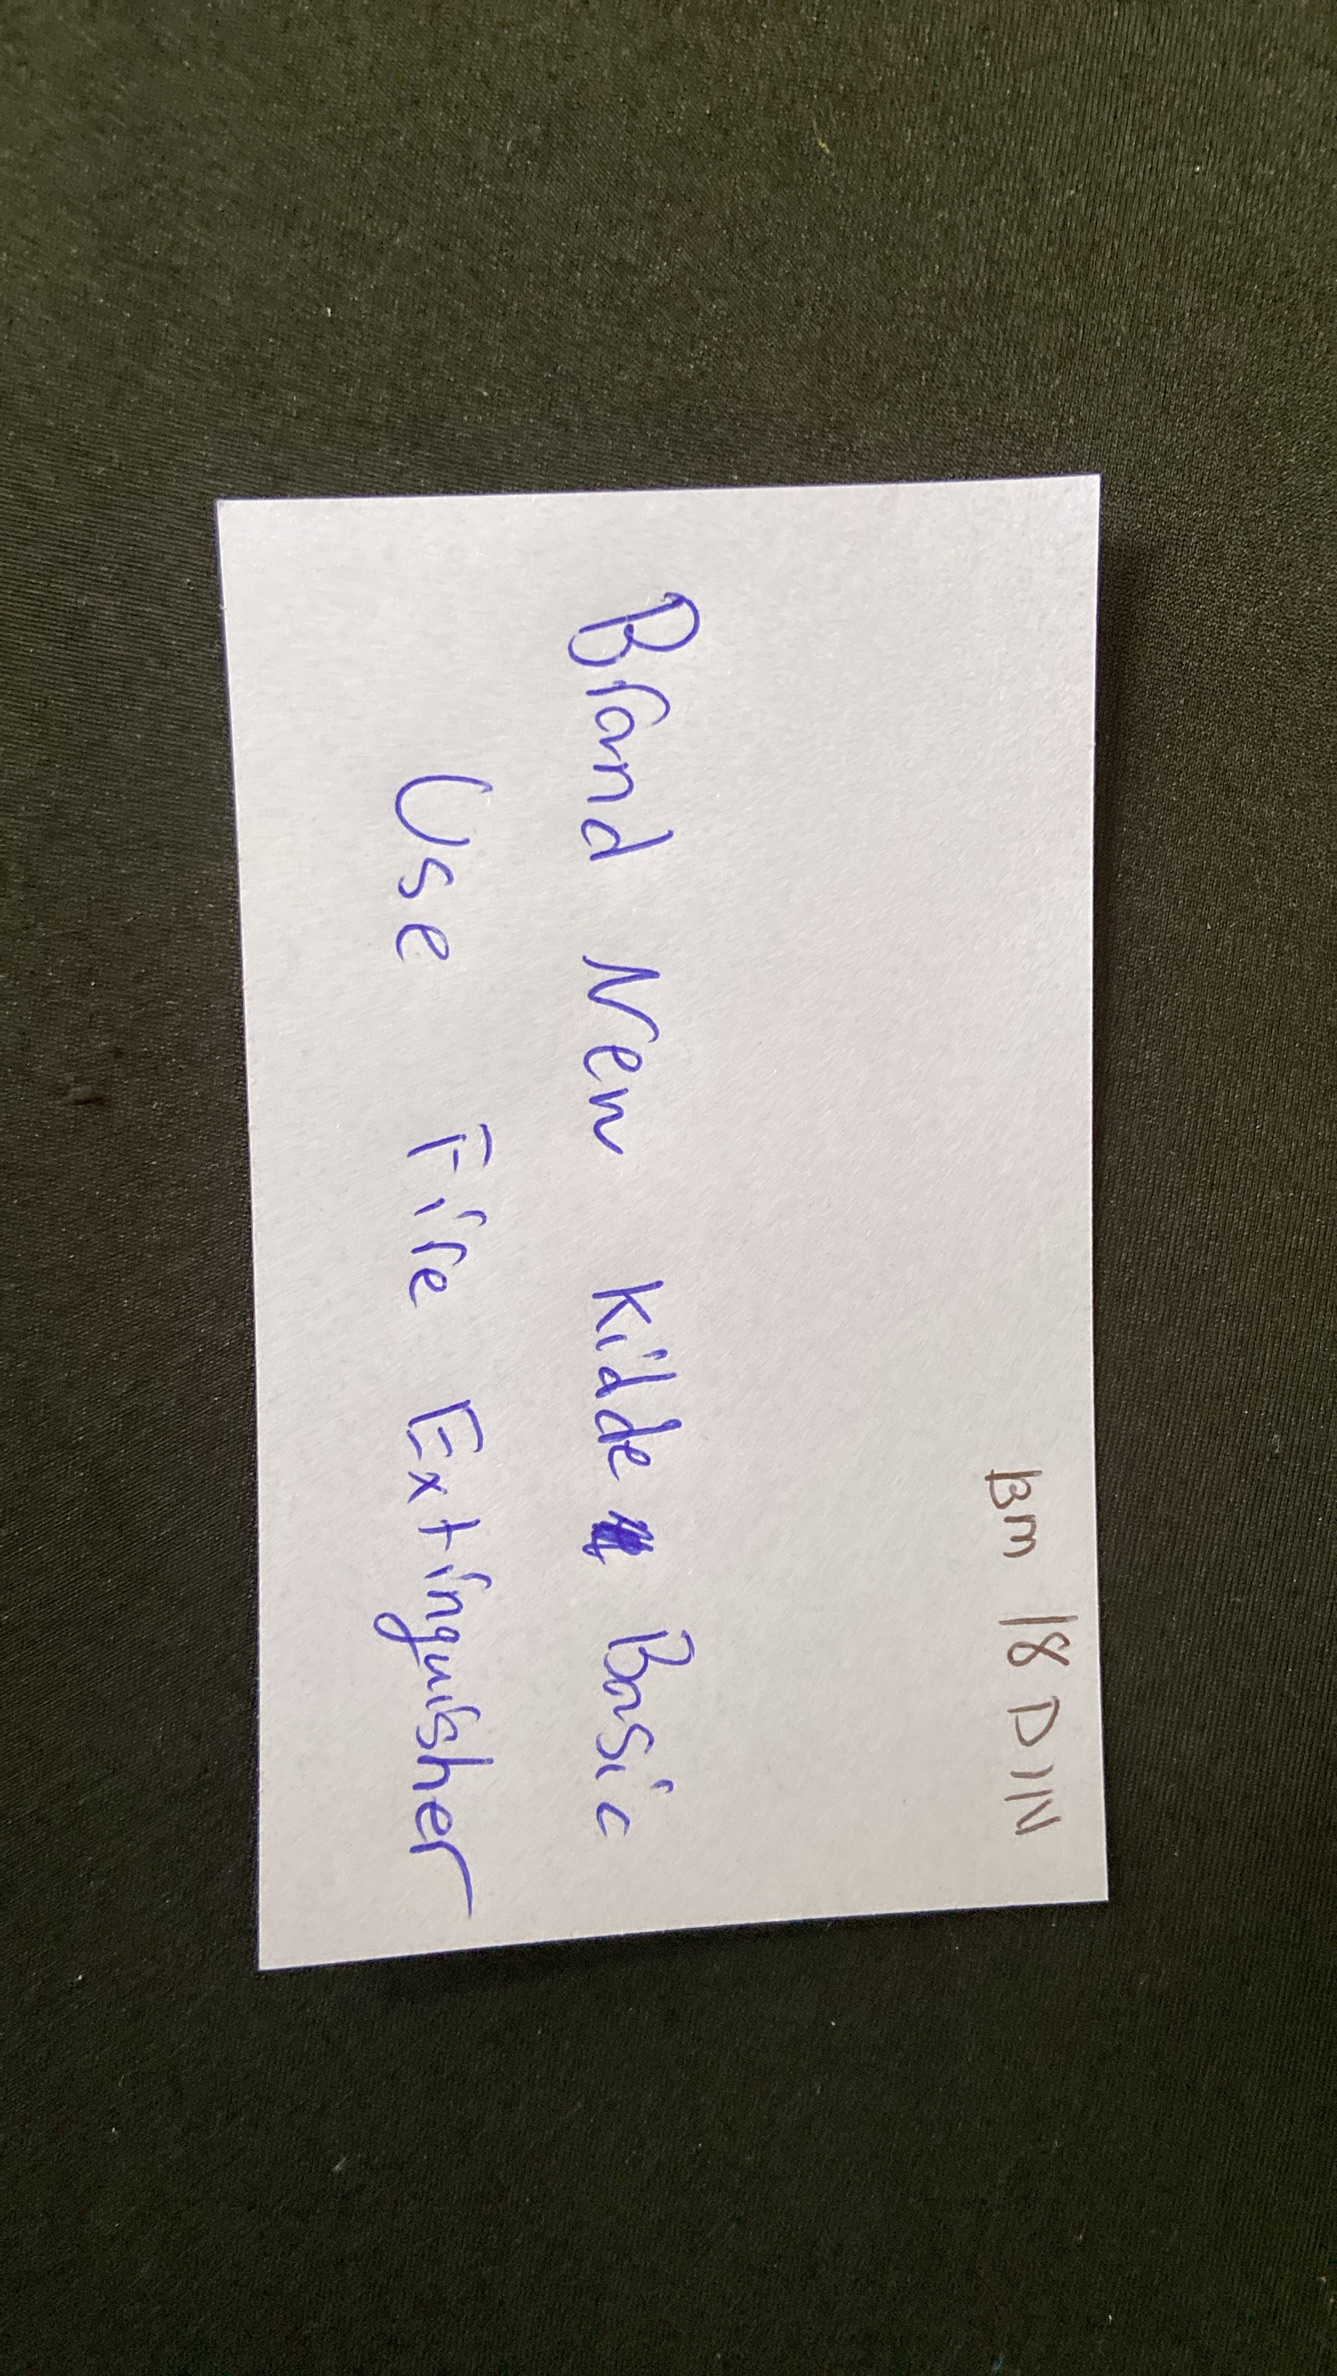 BM 18 DIN
Brand New Kidde Basic
Use Fire Extinguisher